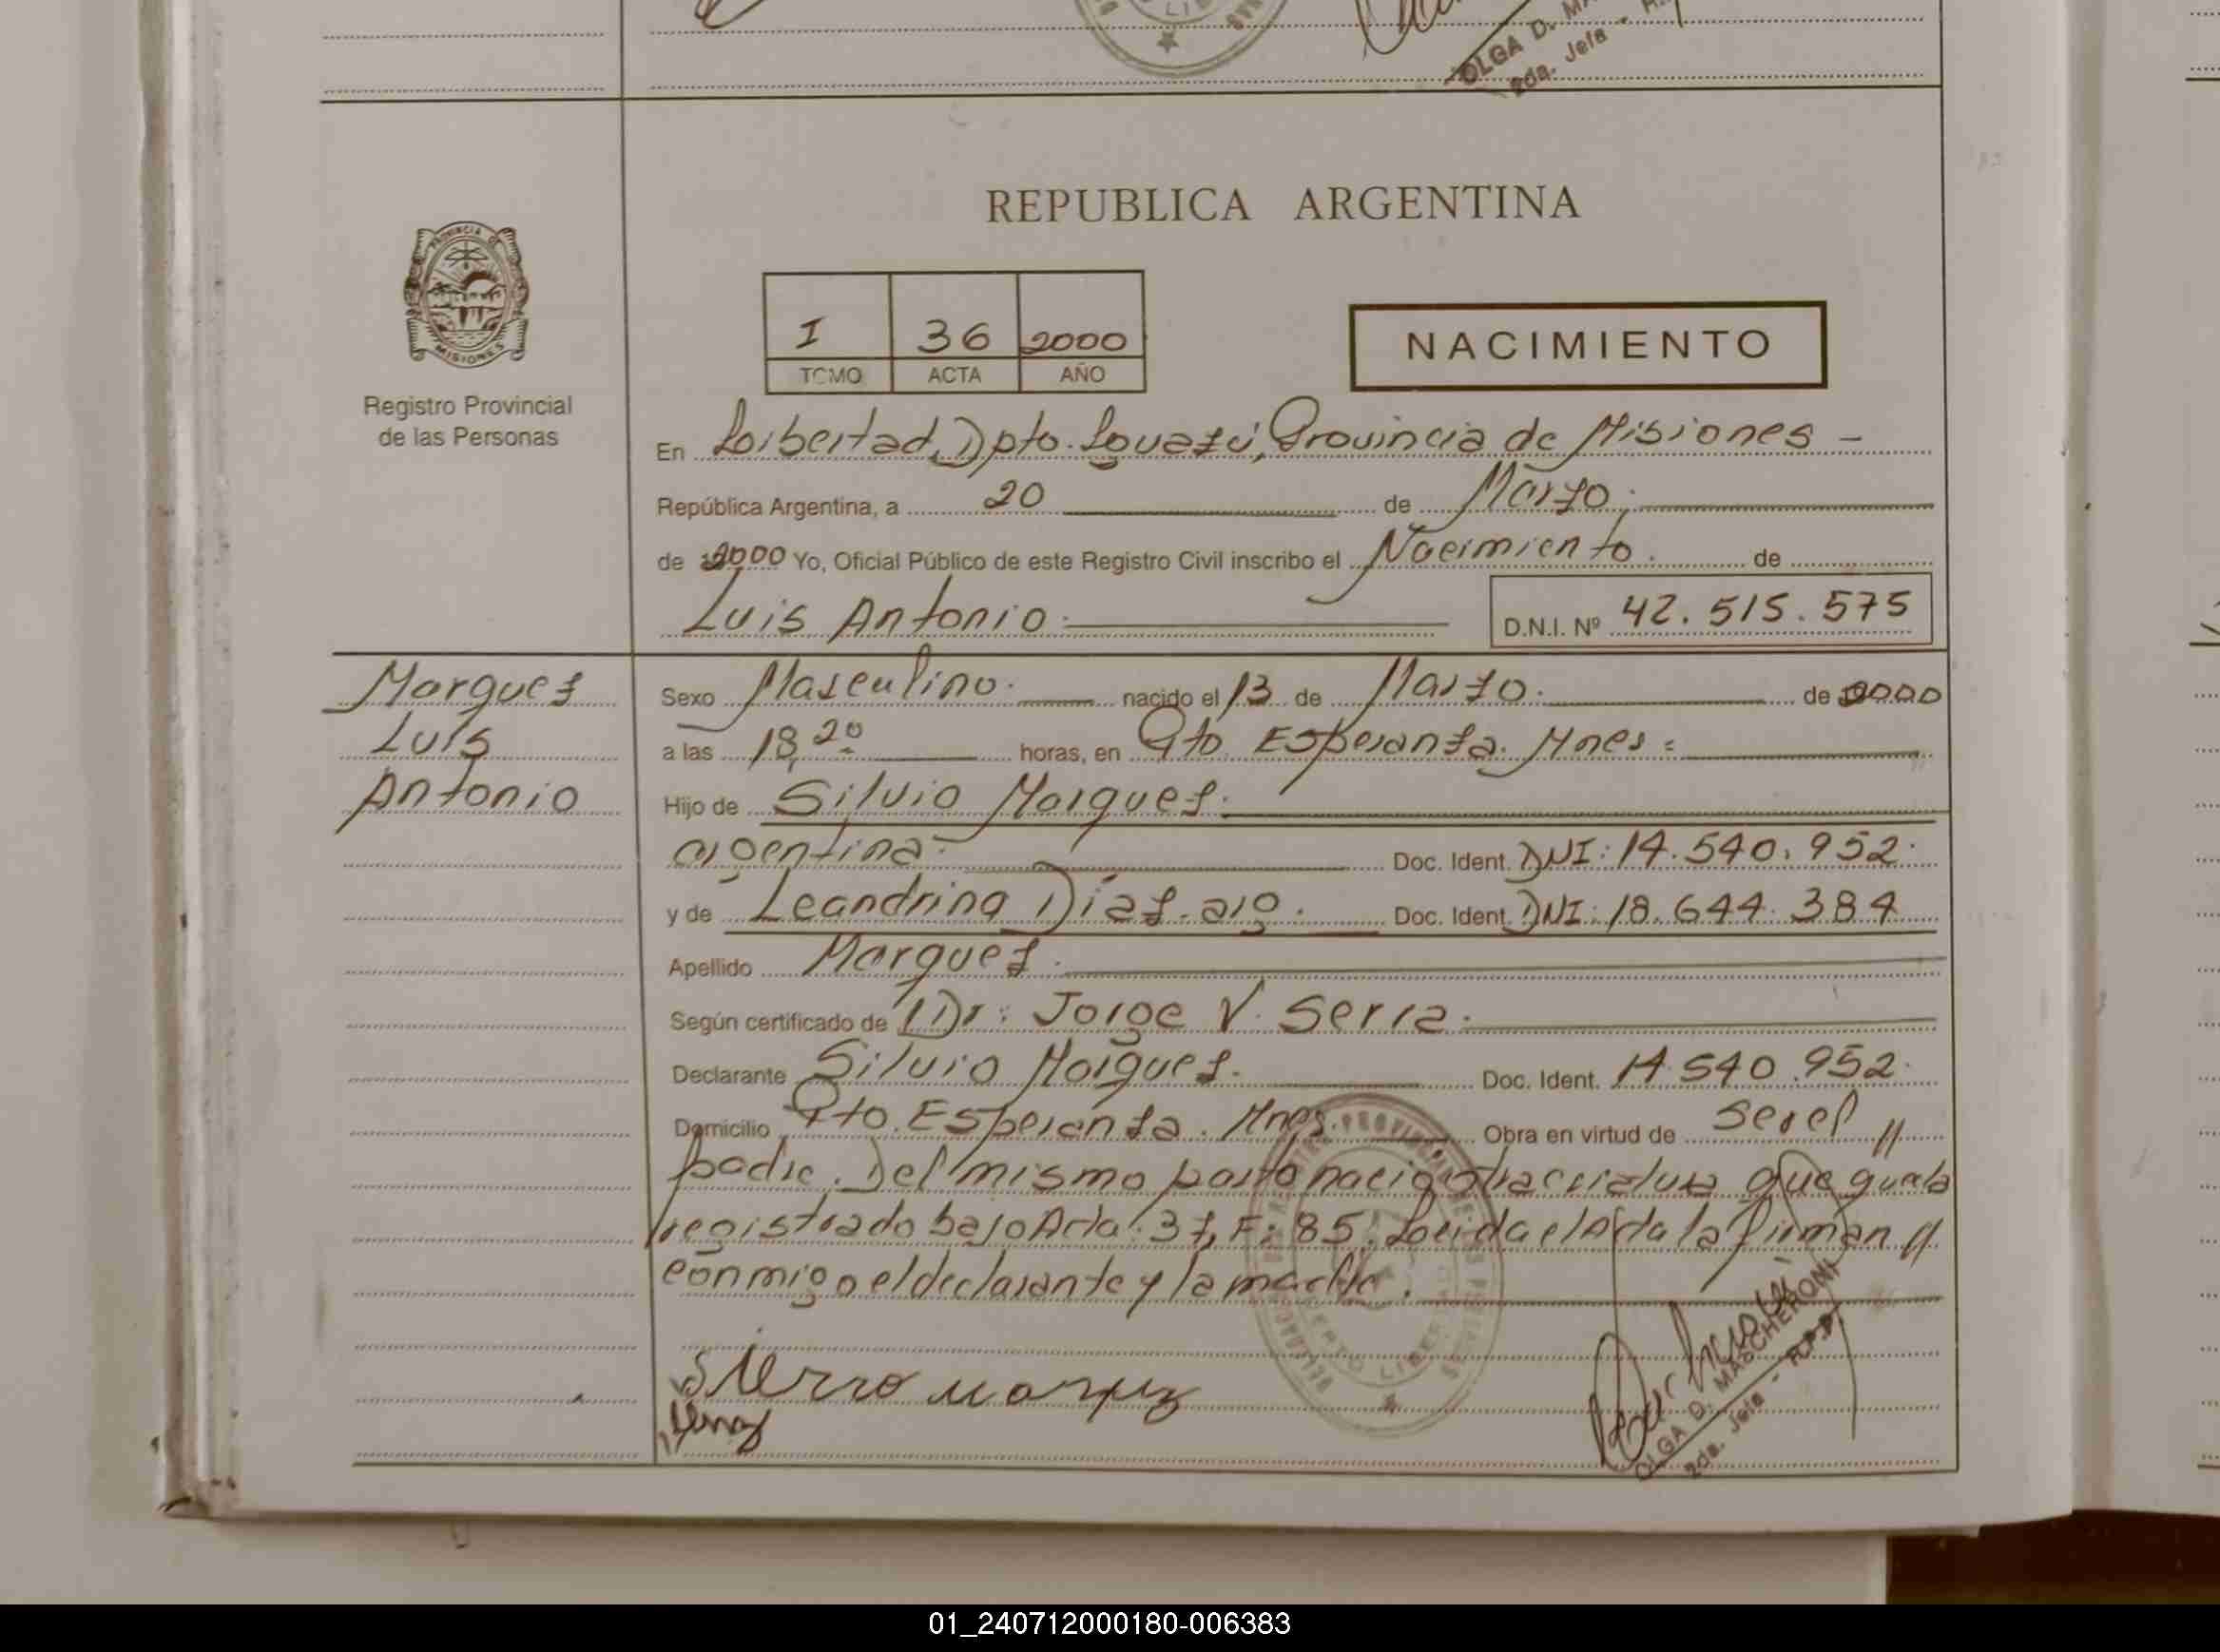 OLGA D. MA
2da. Jefa - R.
REPUBLICA ARGENTINA
PROVINCIA DE
MISIONES
Registro Provincial
de las Personas
I 36 2000
TOMO ACTA AÑO
NACIMIENTO
En Loibertad, Dpto. Iguazú, Provincia de Misiones -
República Argentina, a 20 de Marzo.
de 2000 Yo, Oficial Público de este Registro Civil inscribo el Nacimiento. de
Luis Antonio.
D.N.I. Nº 42.515.575
Marquez
Luis
Antonio
Sexo Masculino. nacido el 13 de Marzo. de 2000
a las 18,20 horas, en Pto. Esperanza. Mnes.
Hijo de Silvio Marquez.
argentina- Doc. Ident. DNI: 14.540.952.
y de Leandrina Díaz. arg. Doc. Ident. DNI: 18.644.384
Apellido Marquez.
Según certificado de Dr: Jorge V. Serra.
Declarante Silvio Marquez. Doc. Ident. 14.540.952.
Domicilio Pto. Esperanza. Mnes. Obra en virtud de ser el //
padre. Del mismo parto nació otra criatura que queda
registrado bajo Acta: 37, F: 85. Leida el Acta la firman //
conmigo el declarante y la madre.
OLGA D. MASCHERONI
2da. Jefa - R.P.P.
01_240712000180-006383